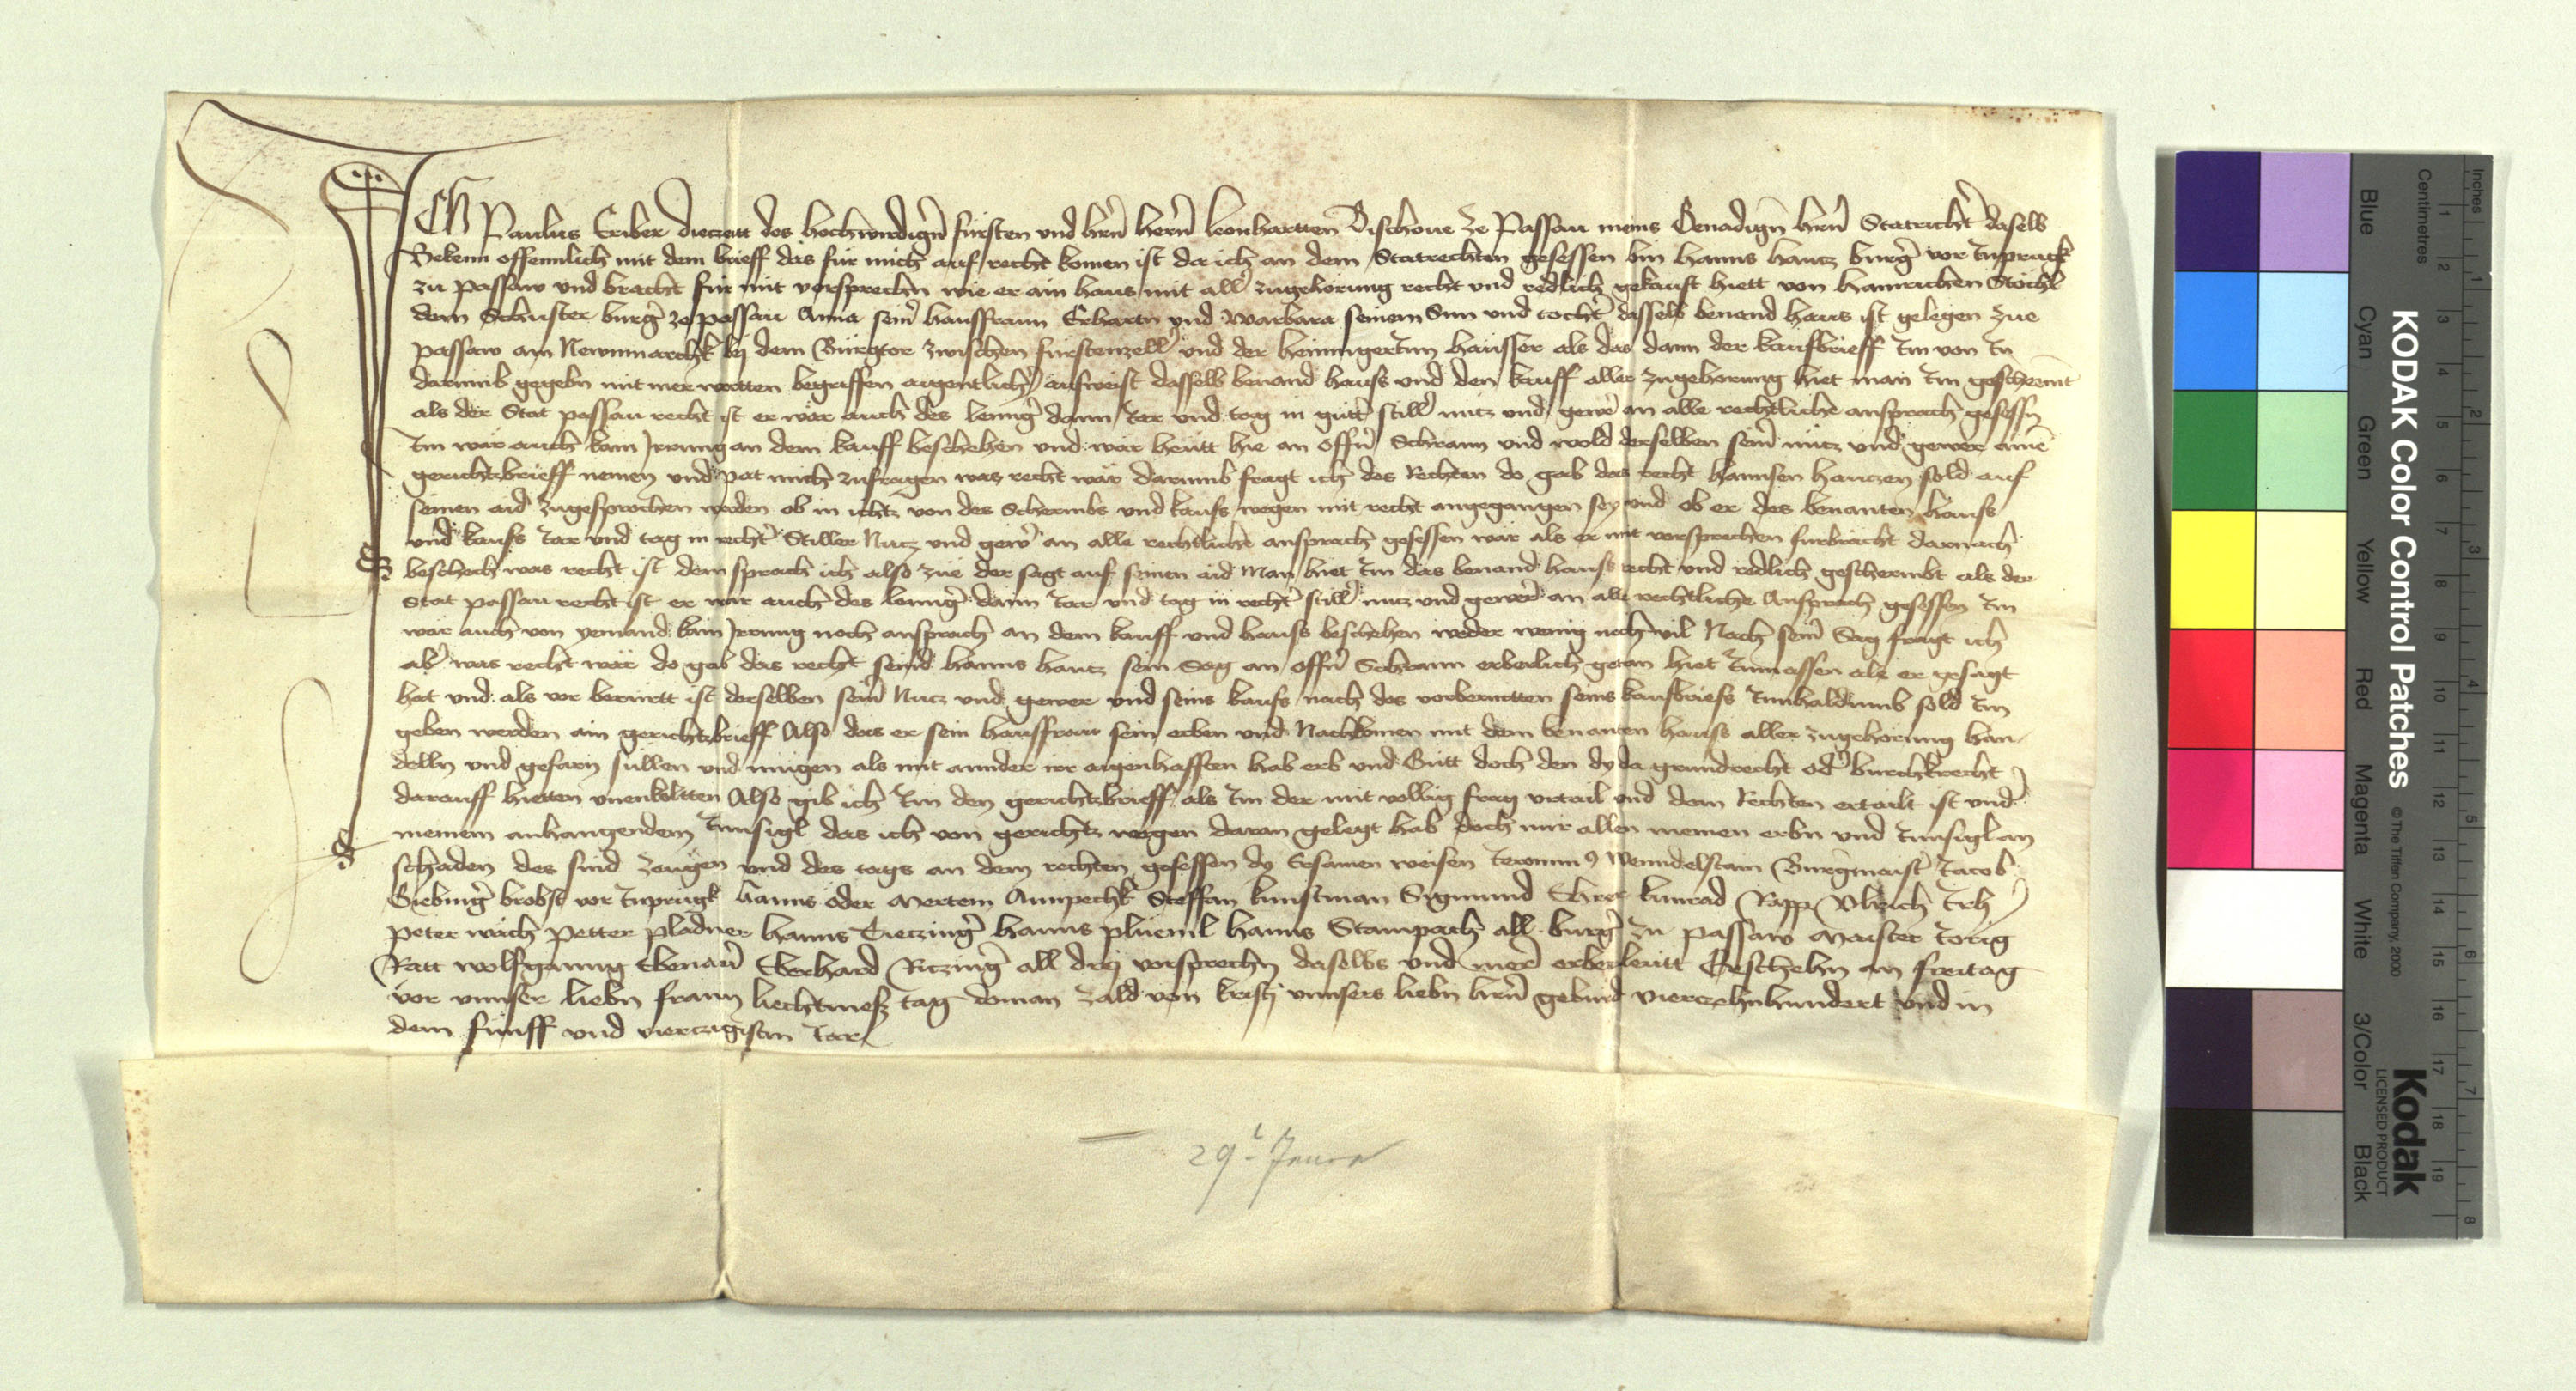 Ich Paulus Eriber diczeit des hochwirdign fürsten und hern hern leonhartten Bischove ze Passau meins Genadign hern Statricht daselbs
Bekenn offennlich mit dem brieff das für mich auf recht komen ist da ich an dem Statrechten gesessen bin hanns hantz burg vor Inprugk
zu passaw und bracht für mit vorsprechn wie er ain haus mit all zugehorung recht und redlich gekauft hiett von hainrichen Stöchl
dem Schuster burg ze passau Anna sein hausfraun Erhartn und Warbara seinem Sun und tocht dasselb benand haus ist gelegen zue
passaw am Newnmarchk bey dem Bürgtor zwischen fürstenzell und der heninger Inn hausser als das dann der kaufbrieff Im von In
darumb gegebn mit mer wortten begriffen aigentlich aufweist dasselb benand hauss und den kauff aller zugehorung hiet man Im gescheermt
als der Stat passau recht ist er wär auch des lenng dann Iar und tag in gutt still nutz und gewer an alle rechtliche ansprach gesessn
Im wär auch kain Irrung an dem kauff beschehen und wär heutt hie an offn Schrann und wold derselben sein nutz und gewer ainen
gerichtzbrieff nemen und pat mich zufragen was recht wär darumb fragt ich des Rechten do gab das recht hannsen hantzen sold auf
seinen aid zugesprochen werden ob in ichtz von des Schermbs und kaufs wegen mit recht angegangen sey und ob er des benanten hauss
und kaufs Iar und tag in recht Stiller Nutz und gewer an alle rechtliche ansprach gesessen wär als er mit vorsprechen furbracht darnach
beschech was recht ist dem sprach ich also zue der sagt auf seinen aid Man hiet Im das benand hauss recht und redlich geschermbt als der
Stat passau recht ist er wär auch des lenng dann Iar und tag in recht still nutz und gewer an alle rechtliche Ansprach gesessen Im
wär auch von yemand kain Irrung noch ansprach an dem kauff und hauss beschehen weder wenig noch vil Nach sein Sag fragt ich
ab was recht wär do gab das recht seind hanns hantz sein Sag an offn Schrann erberlich getan hiet Inmassen als er gesagt
hat und als vor berürtt ist derselben sein Nutz und gewer und seins kaufs nach des vorberurtten seins kaufbriefs Innhaldumb sold Im
geben werden ain gerichtzbrieff Also das er sein hausfraw sein erben und Nachkomen mit dem benanten hauss aller zugehorung han
delln und gefarn süllen und mügen als mit annder irr aigenhafften hab erb und Gütt doch den dy da grundrecht od burchkrecht
darauff hietten unenkoltten Also gib ich Im den gerichtzbrieff als Im der mit vollig frag urtail und dem Rechten ertailt ist und
meinem anhangendem Innsigl das ich von gerichtz wegen daran gelegt hab doch mir allen meinen erbn und Innsigl an
schaden des sind zeugen und des tags an dem rechten gesessen dy Ersamen weisen Ieronimus Wenndelstain Burgmaist Iacob
Giebing brobst vor Inprugk hanns oder Mertein Annpechk Steffan kunstman Sigmund kunrad Rapp Ulreich
peter wäch Petter pladner hanns Tietzing hanns pluemel hanns Stampach all burg zu passaw Maister Iörig
Ratt wolfganng Ebenaw Eberhard Ritzing all drey vorsprechn daselbs und mer erberleutt Geschehn an freitag
vor unnser liebn frawn liechtmess tag do man zald von kristi unnsers liebn hern geburd vierczehnhundert und in
dem fünff und vierczigistm Iar
29t Jenner
KODAK Color Control Patches
© The Tiffen Company, 2000
Kodak
LICENSED PRODUCT
Blue
Cyan
Green
Yellow
Red
Magenta
White
3/Color
Black
Centimetres
Inches
1 2 3 4 5 6 7 8 9 10 11 12 13 14 15 16 17 18 19
1 2 3 4 5 6 7 8